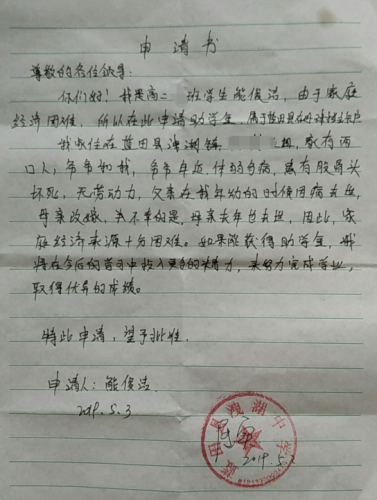 申请书
尊敬的各位领导:
你们好!我是高二 班学生熊俊洁,由于家庭
经济困难,所以在此申请助学金.属于蓝田县在册建档立卡户
我家住在蓝田县洩湖镇 组,家有两
口人,爷爷和我,爷爷年近, 体弱多病,患有股骨头
坏死,无劳动力,父亲在我年幼的时候因病去世,
母亲改嫁,更不幸的是,母亲去年也去世,因此,家
庭经济来源十分困难。如果能获得助学金,我
将在今后的学习中投入更多的精力,来努力完成学业,
取得优异的成绩。
特此申请,望予批准.
申请人:熊俊洁.
2019.5.3
蓝田县洩湖中学
2019.5.